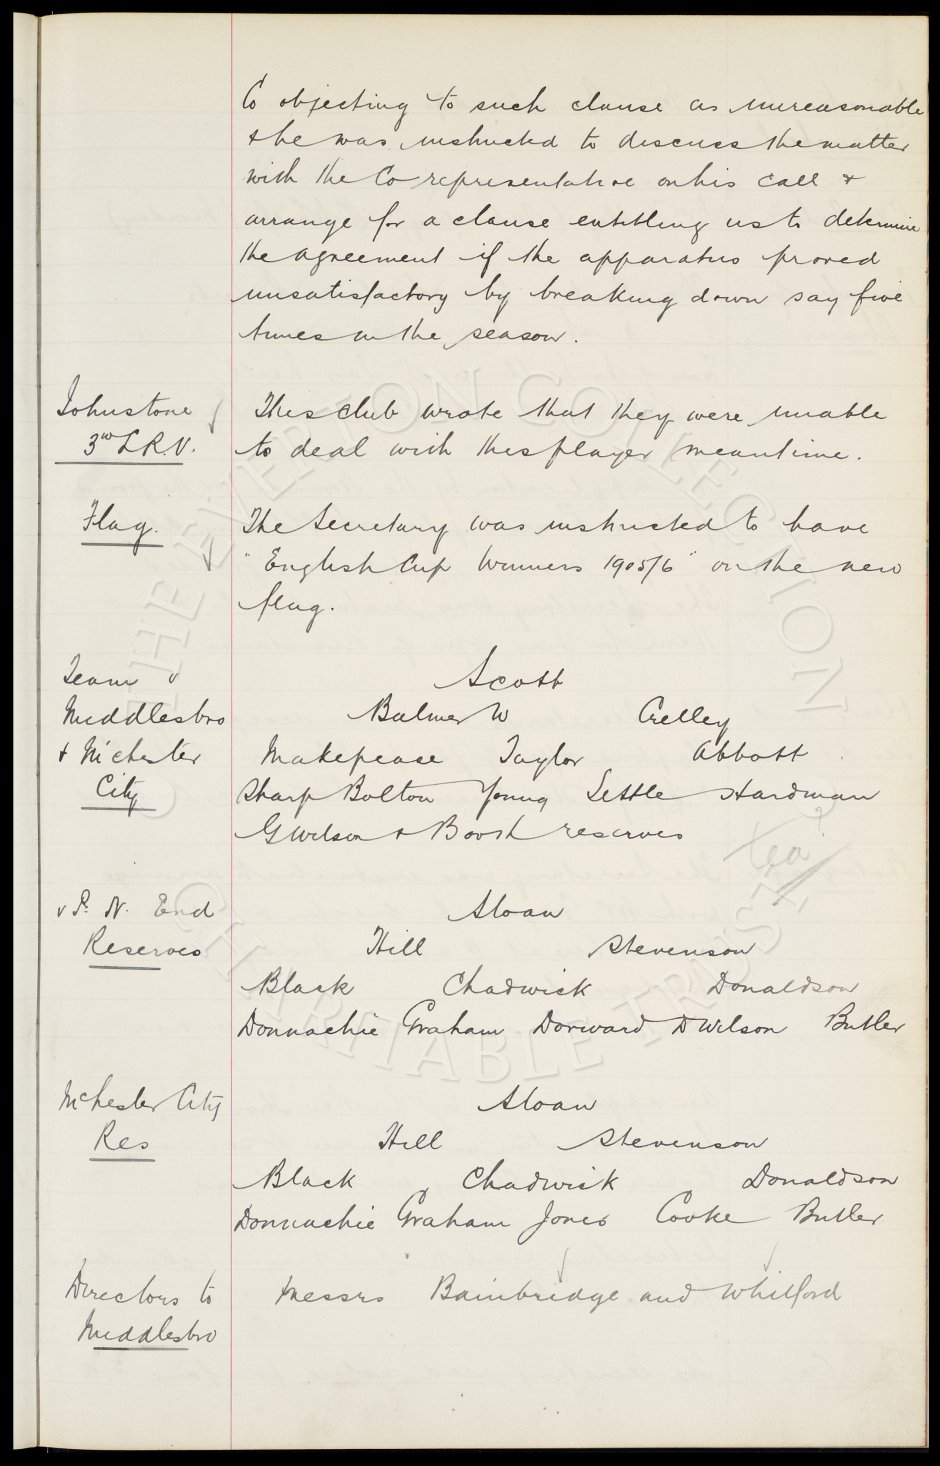 Co objecting to such clause as unreasonable
& he was instructed to discuss the matter
with the Co representative on his call &
arrange for a clause entitling us to determine
the agreement if the apparatus proved
unsatisfactory by breaking down say five
times in the season.
Johnstone
3rd L.R.V.
This club wrote that they were unable
to deal with this player meantime.
Flag.
The Secretary was instructed to have
"English Cup Winners 1905/6" on the new
flag.
Team v
Middlesbro
& M'chester
City
Scott
Balmer W Crelley
Makepeace Taylor Abbott
Sharp Bolton Young Settle Hardman
G Wilson & Booth reserves
v P. N. End
Reserves
Sloan
Hill Stevenson
Black Chadwick Donaldson
Donnachie Graham Dorward D Wilson Butler
Mchester City
Res
Sloan
Hill Stevenson
Black Chadwick Donaldson
Donnachie Graham Jones Cooke Butler
Directors to
Middlesbro
Messrs Bainbridge and Whitford
THE EVERTON COLLECTION
CHARITABLE TRUST